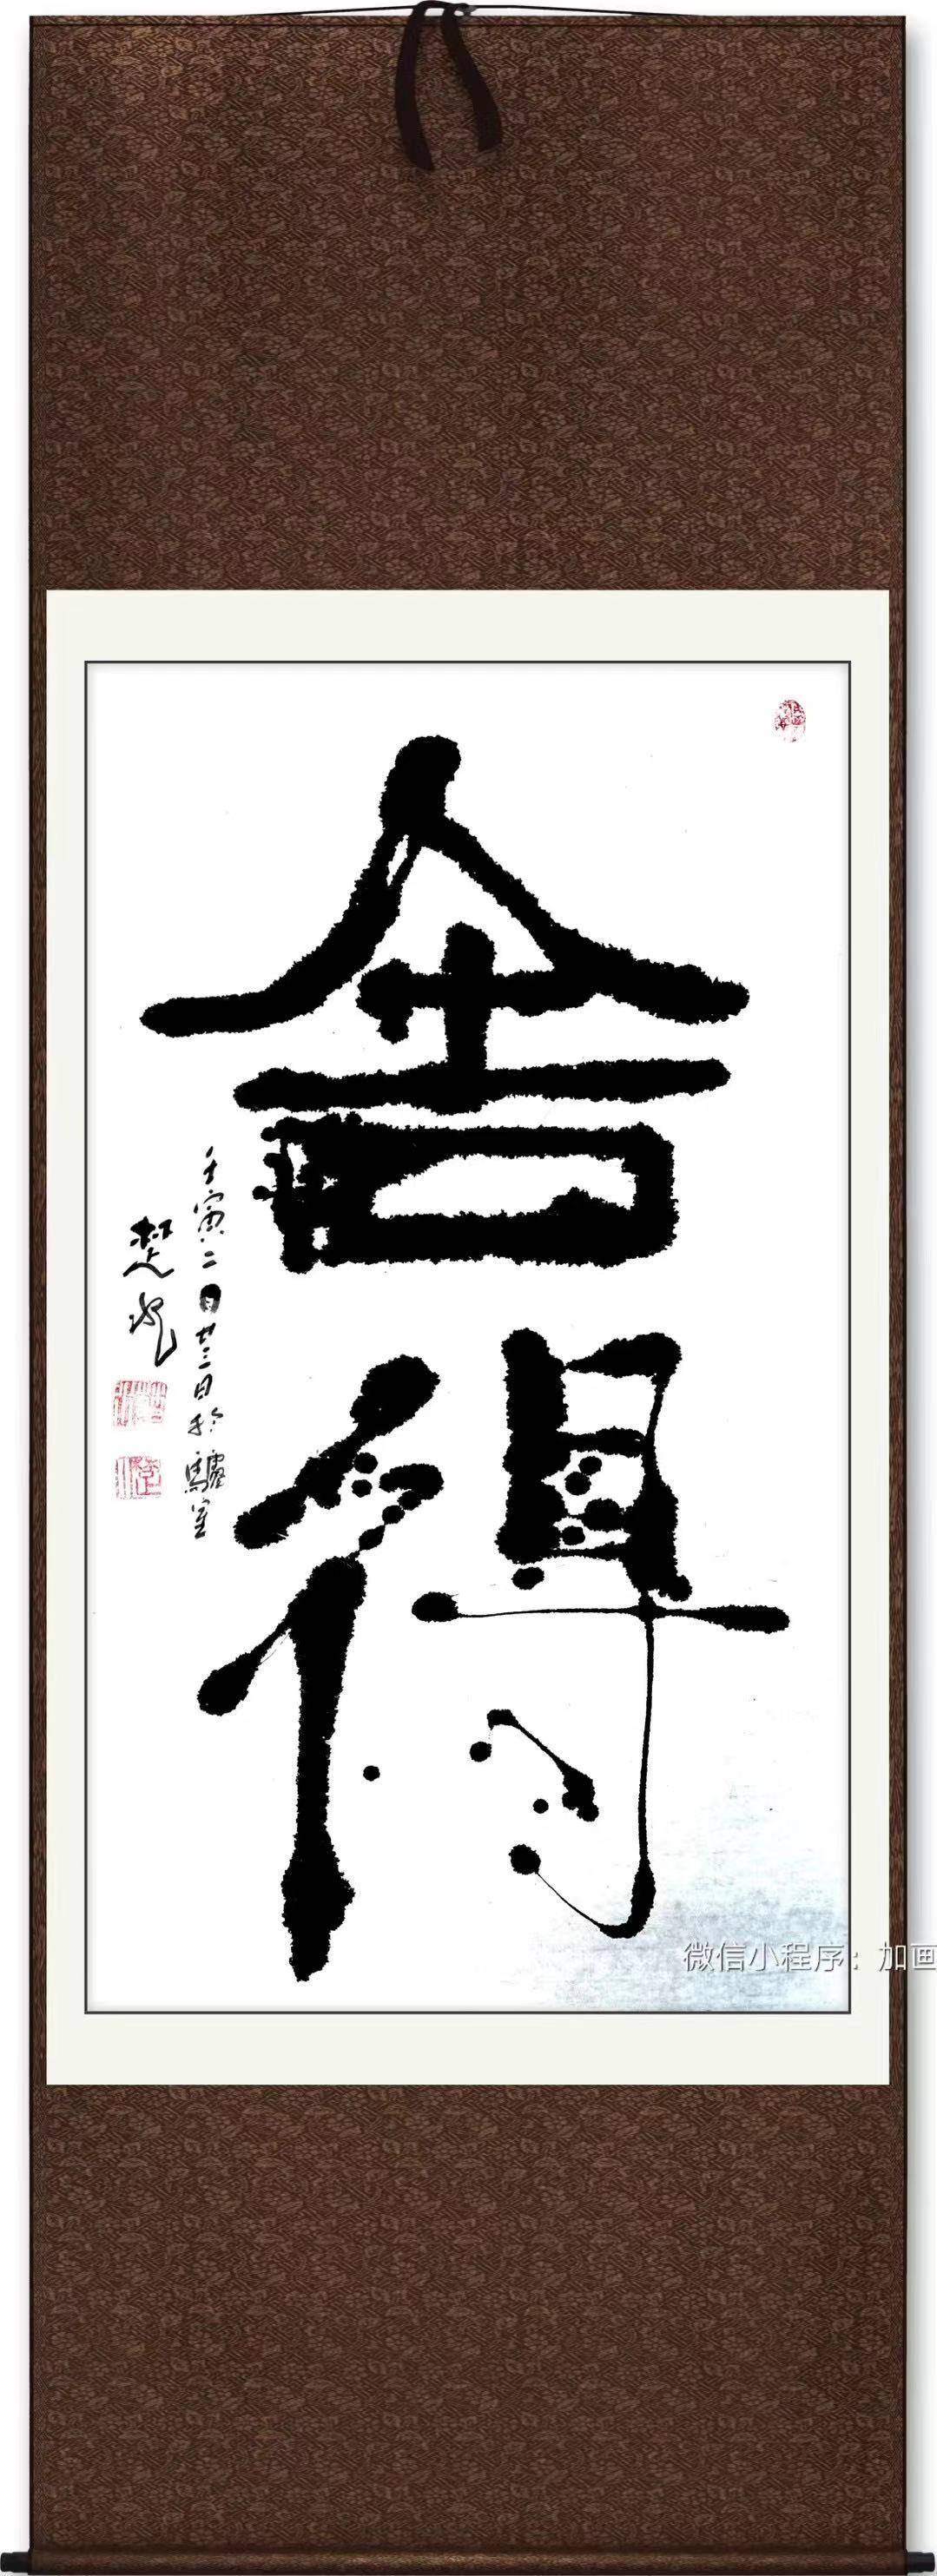 舍得
壬寅二月廿三日於驢室
楚
微信小程序：加画